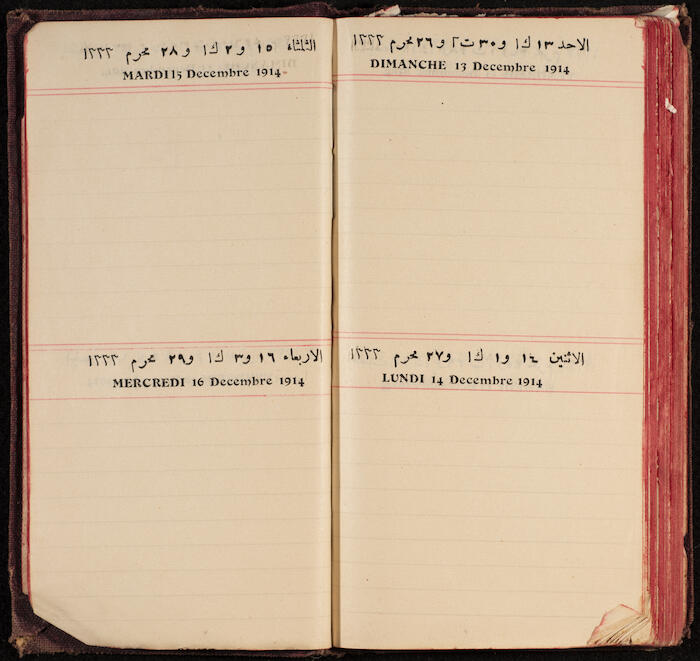 الاحد ١٣ ك١ و ٣٠ ت٢ و ٢٦ محرم ١٣٣٣
DIMANCHE 13 Decembre 1914
الاثنين ١٤ و ١ ك١ و ٢٧ محرم ١٣٣٣
LUNDI 14 Decembre 1914
الثلثاء ١٥ و ٢ ك١ و ٢٨ محرم ١٣٣٣
MARDI 15 Decembre 1914
الاربعاء ١٦ و ٣ ك١ و ٢٩ محرم ١٣٣٣
MERCREDI 16 Decembre 1914